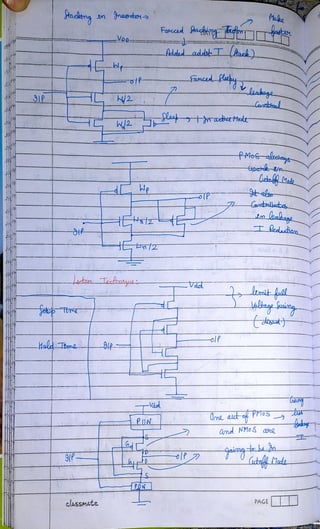 Stacking in Inverter →
Forced Stacking Tech → Make faster
VDD
Added addnl T (Stack)
Wp
O/P
Forced Sleepy
Leakage
Control
I/P
W/2
W/2
Sleep → 1 In active Mode
PMOS always
work in
Cutoff Mode
Wp
O/P
It also
Contributes
in leakage
I Reduction
I/P
Wn/2
Wn/2
Lector Technique:
Vdd
limit full
Voltage Swing
(disadv)
Setup Time
O/P
Hold Time
I/P
Vdd
PUN
One out of PMOS → less leakage I
and NMOS are
going to be in
Cutoff Mode
S
G
D
D
O/P
I/P
G
S
PDN
classmate
PAGE